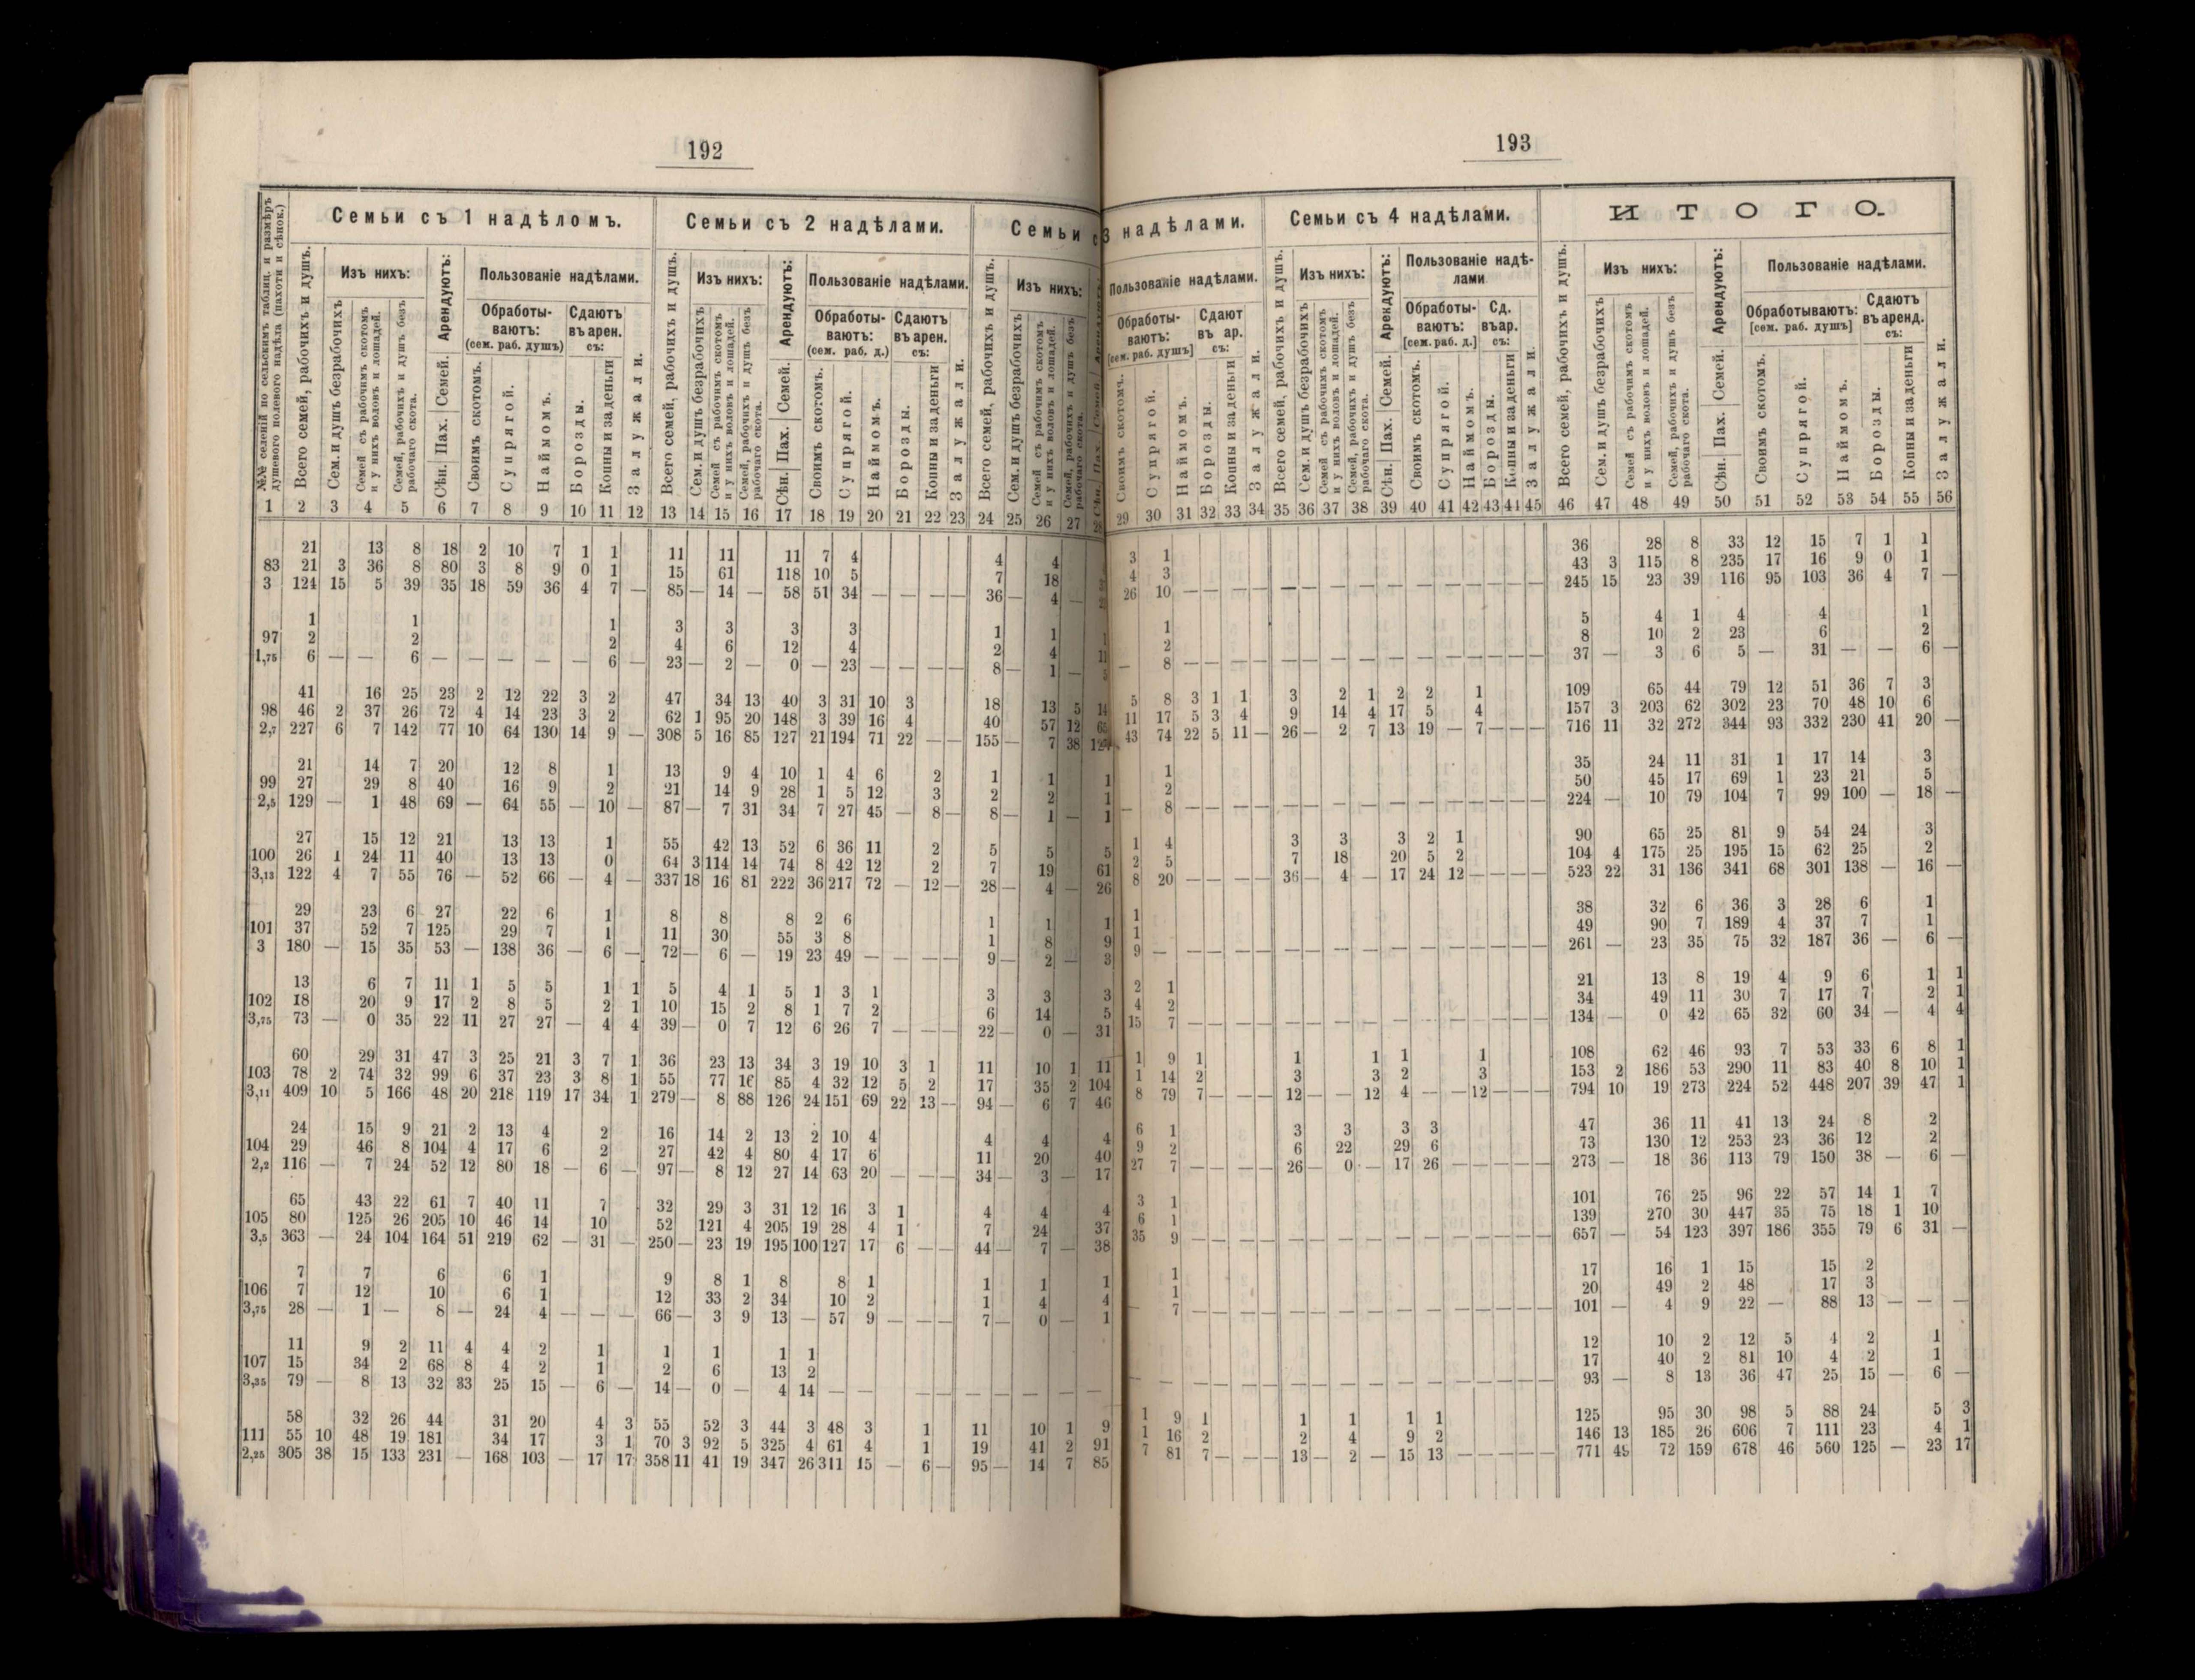 192
Семьи съ 1 надѣломъ. Семьи съ 2 надѣлами. Семьи с
№№ селеній по сельскимъ таблиц. и размѣръ душевого полевого надѣла (пахоти и сѣнок.)
Всего семей, рабочихъ и душъ.
Изъ нихъ:
Сем. и душъ безрабочихъ
Семей съ рабочимъ скотомъ и у нихъ воловъ и лошадей.
Семей, рабочихъ и душъ безъ рабочаго скота.
Арендуютъ:
Сѣн. Пах. Семей.
Пользованіе надѣлами.
Обработываютъ: (сем. раб. душъ)
Своимъ скотомъ.
Супрягой.
Наймомъ.
Сдаютъ въ арен. съ:
Борозды.
Копны и за деньги
Залужали.
Всего семей, рабочихъ и душъ.
Изъ нихъ:
Сем. и душъ безрабочихъ
Семей съ рабочимъ скотомъ и у нихъ воловъ и лошадей.
Семей, рабочихъ и душъ безъ рабочаго скота.
Арендуютъ:
Сѣн. Пах. Семей.
Пользованіе надѣлами.
Обработываютъ: (сем. раб. д.)
Своимъ скотомъ.
Супрягой.
Наймомъ.
Сдаютъ въ арен. съ:
Борозды.
Копны и за деньги
Залужали.
Всего семей, рабочихъ и душъ.
Изъ нихъ:
Сем. и душъ безрабочихъ
Семей съ рабочимъ скотомъ и у нихъ воловъ и лошадей.
Семей, рабочихъ и душъ безъ рабочаго скота.
1 2 3 4 5 6 7 8 9 10 11 12 13 14 15 16 17 18 19 20 21 22 23 24 25 26 27 28
21 13 8 18 2 10 7 1 1 11 11 11 7 4 4 4
83 21 3 36 8 80 3 8 9 0 1 15 61 118 10 5 7 18
3 124 15 5 39 35 18 59 36 4 7 — 85 — 14 — 58 51 34 — — — — 36 — 4 —
1 1 1 3 3 3 3 1 1
97 2 2 2 4 6 12 4 2 4
1,75 6 — — 6 — — — — — 6 — 23 — 2 — 0 — 23 — — — — 8 — 1 —
41 16 25 23 2 12 22 3 2 47 34 13 40 3 31 10 3 18 13 5 14
98 46 2 37 26 72 4 14 23 3 2 62 1 95 20 148 3 39 16 4 40 57 12
2,7 227 6 7 142 77 10 64 130 14 9 — 308 5 16 85 127 21 194 71 22 — — 155 — 7 38
21 14 7 20 12 8 1 13 9 4 10 1 4 6 2 1 1 1
99 27 29 8 40 16 9 2 21 14 9 28 1 5 12 3 2 2 1
2,5 129 — 1 48 69 — 64 55 — 10 — 87 — 7 31 34 7 27 45 — 8 — 8 — 1 — 1
27 15 12 21 13 13 1 55 42 13 52 6 36 11 2 5 5 5
100 26 1 24 11 40 13 13 0 64 3 114 14 74 8 42 12 2 7 19 61
3,13 122 4 7 55 76 — 52 66 — 4 — 337 18 16 81 222 36 217 72 — 12 — 28 — 4 — 26
29 23 6 27 22 6 1 8 8 8 2 6 1 1 1
101 37 52 7 125 29 7 1 11 30 55 3 8 1 8 9
3 180 — 15 35 53 — 138 36 — 6 — 72 — 6 — 19 23 49 — — — — 9 — 2 — 3
13 6 7 11 1 5 5 1 1 5 4 1 5 1 3 1 3 3 3
102 18 20 9 17 2 8 5 2 1 10 15 2 8 1 7 2 6 14 5
3,75 73 — 0 35 22 11 27 27 — 4 4 39 — 0 7 12 6 26 7 — — — 22 — 0 — 31
60 29 31 47 3 25 21 3 7 1 36 23 13 34 3 19 10 3 1 11 10 1 11
103 78 2 74 32 99 6 37 23 3 8 1 55 77 16 85 4 32 12 5 2 17 35 2 104
3,11 409 10 5 166 48 20 218 119 17 34 1 279 — 8 88 126 24 151 69 22 13 — 94 — 6 7 46
24 15 9 21 2 13 4 2 16 14 2 13 2 10 4 4 4 4
104 29 46 8 104 4 17 6 2 27 42 4 80 4 17 6 11 20 40
2,2 116 — 7 24 52 12 80 18 — 6 — 97 — 8 12 27 14 63 20 — — — 34 — 3 — 17
65 43 22 61 7 40 11 7 32 29 3 31 12 16 3 1 4 4 4
105 80 125 26 205 10 46 14 10 52 121 4 205 19 28 4 1 7 24 37
3,5 363 — 24 104 164 51 219 62 — 31 — 250 — 23 19 195 100 127 17 6 — — 44 — 7 — 38
7 7 6 6 1 9 8 1 8 8 1 1 1 1
106 7 12 10 6 1 12 33 2 34 10 2 1 4 4
3,75 28 — 1 — 8 — 24 4 — — — 66 — 3 9 13 — 57 9 — — — 7 — 0 — 1
11 9 2 11 4 4 2 1 1 1 1 1
107 15 34 2 68 8 4 2 1 2 6 13 2
3,35 79 — 8 13 32 33 25 15 — 6 — 14 — 0 — 4 14 — — — — — — — — — —
58 32 26 44 31 20 4 3 55 52 3 44 3 48 3 1 11 10 1 9
111 55 10 48 19 181 34 17 3 1 70 3 92 5 325 4 61 4 1 19 41 2 91
2,25 305 38 15 133 231 — 168 103 — 17 17 358 11 41 19 347 26 311 15 — 6 — 95 — 14 7 85
193
3 надѣлами. Семьи съ 4 надѣлами. ИТОГО.
Пользованіе надѣлами.
Обработываютъ: [сем. раб. душъ]
Своимъ скотомъ.
Супрягой.
Наймомъ.
Сдают въ ар. съ:
Борозды.
Копны и за деньги
Залужали.
Всего семей, рабочихъ и душъ.
Изъ нихъ:
Сем. и душъ безрабочихъ
Семей съ рабочимъ скотомъ и у нихъ воловъ и лошадей.
Семей, рабочихъ и душъ безъ рабочаго скота.
Арендуютъ:
Сѣн. Пах. Семей.
Пользованіе надѣлами
Обработываютъ: [сем. раб. д.]
Своимъ скотомъ.
Супрягой.
Наймомъ.
Сд. въ ар. съ:
Борозды.
Копны и за деньги
Залужали.
Всего семей, рабочихъ и душъ.
Изъ нихъ:
Сем. и душъ безрабочихъ
Семей съ рабочимъ скотомъ и у нихъ воловъ и лошадей.
Семей, рабочихъ и душъ безъ рабочаго скота.
Арендуютъ:
Сѣн. Пах. Семей.
Пользованіе надѣлами.
Обработываютъ: [сем. раб. душъ]
Своимъ скотомъ.
Супрягой.
Наймомъ.
Сдаютъ въ аренд. съ:
Борозды.
Копны и за деньги
Залужали.
29 30 31 32 33 34 35 36 37 38 39 40 41 42 43 44 45 46 47 48 49 50 51 52 53 54 55 56
3 1 36 28 8 33 12 15 7 1 1
4 3 43 3 115 8 235 17 16 9 0 1
26 10 — — — — — — — — — — — — — — — 245 15 23 39 116 95 103 36 4 7 —
1 5 4 1 4 4 1
2 8 10 2 23 6 2
— 8 — — — — — — — — — — — — — — — 37 — 3 6 5 — 31 — — 6 —
5 8 3 1 1 3 2 1 2 2 1 109 65 44 79 12 51 36 7 3
11 17 5 3 4 9 14 4 17 5 4 157 3 203 62 302 23 70 48 10 6
43 74 22 5 11 — 26 — 2 7 13 19 — 7 — — — 716 11 32 272 344 93 332 230 41 20 —
1 35 24 11 31 1 17 14 3
2 50 45 17 69 1 23 21 5
— 8 — — — — — — — — — — — — — — — 224 — 10 79 104 7 99 100 — 18 —
1 4 3 3 3 2 1 90 65 25 81 9 54 24 3
2 5 7 18 20 5 2 104 4 175 25 195 15 62 25 2
8 20 — — — — 36 — 4 — 17 24 12 — — — — 523 22 31 136 341 68 301 138 — 16 —
1 38 32 6 36 3 28 6 1
1 49 90 7 189 4 37 7 1
9 — — — — — — — — — — — — — — — — 261 — 23 35 75 32 187 36 — 6 —
2 1 21 13 8 19 4 9 6 1 1
4 2 34 49 11 30 7 17 7 2 1
15 7 — — — — — — — — — — — — — — — 134 — 0 42 65 32 60 34 — 4 4
1 9 1 1 1 1 1 108 62 46 93 7 53 33 6 8 1
1 14 2 3 3 2 3 153 2 186 53 290 11 83 40 8 10 1
8 79 7 — — — 12 — — 12 4 — — 12 — — — 794 10 19 273 224 52 448 207 39 47 1
6 1 3 3 3 3 47 36 11 41 13 24 8 2
9 2 6 22 29 6 73 130 12 253 23 36 12 2
27 7 — — — — 26 — 0 — 17 26 — — — — — 273 — 18 36 113 79 150 38 — 6 —
3 1 101 76 25 96 22 57 14 1 7
6 1 139 270 30 447 35 75 18 1 10
35 9 — — — — — — — — — — — — — — — 657 — 54 123 397 186 355 79 6 31 —
1 17 16 1 15 15 2
1 20 49 2 48 17 3
— 7 — — — — — — — — — — — — — — — 101 — 4 9 22 — 88 13 — — —
12 10 2 12 5 4 2 1
17 40 2 81 10 4 2 1
— — — — — — — — — — — — — — — — — 93 — 8 13 36 47 25 15 — 6 —
1 9 1 1 1 1 1 125 95 30 98 5 88 24 5 3
1 16 2 2 4 9 2 146 13 185 26 606 7 111 23 4 1
7 81 7 — — — 13 — 2 — 15 13 — — — — — 771 49 72 159 678 46 560 125 — 23 17